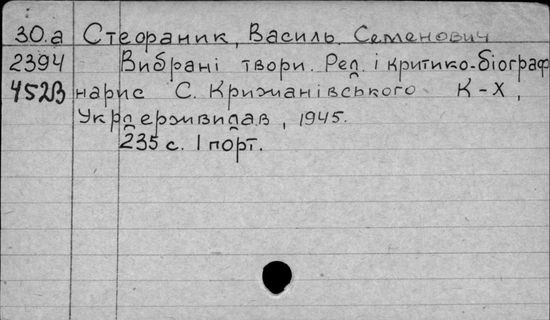 30.а Стефаник, Василь Семенович
2394 Вибрані твори. Ред. і критико-біограф
4523 нарис С. Крижанівського К-Х,
Укрдержвидав, 1945.
235 с. 1 порт.